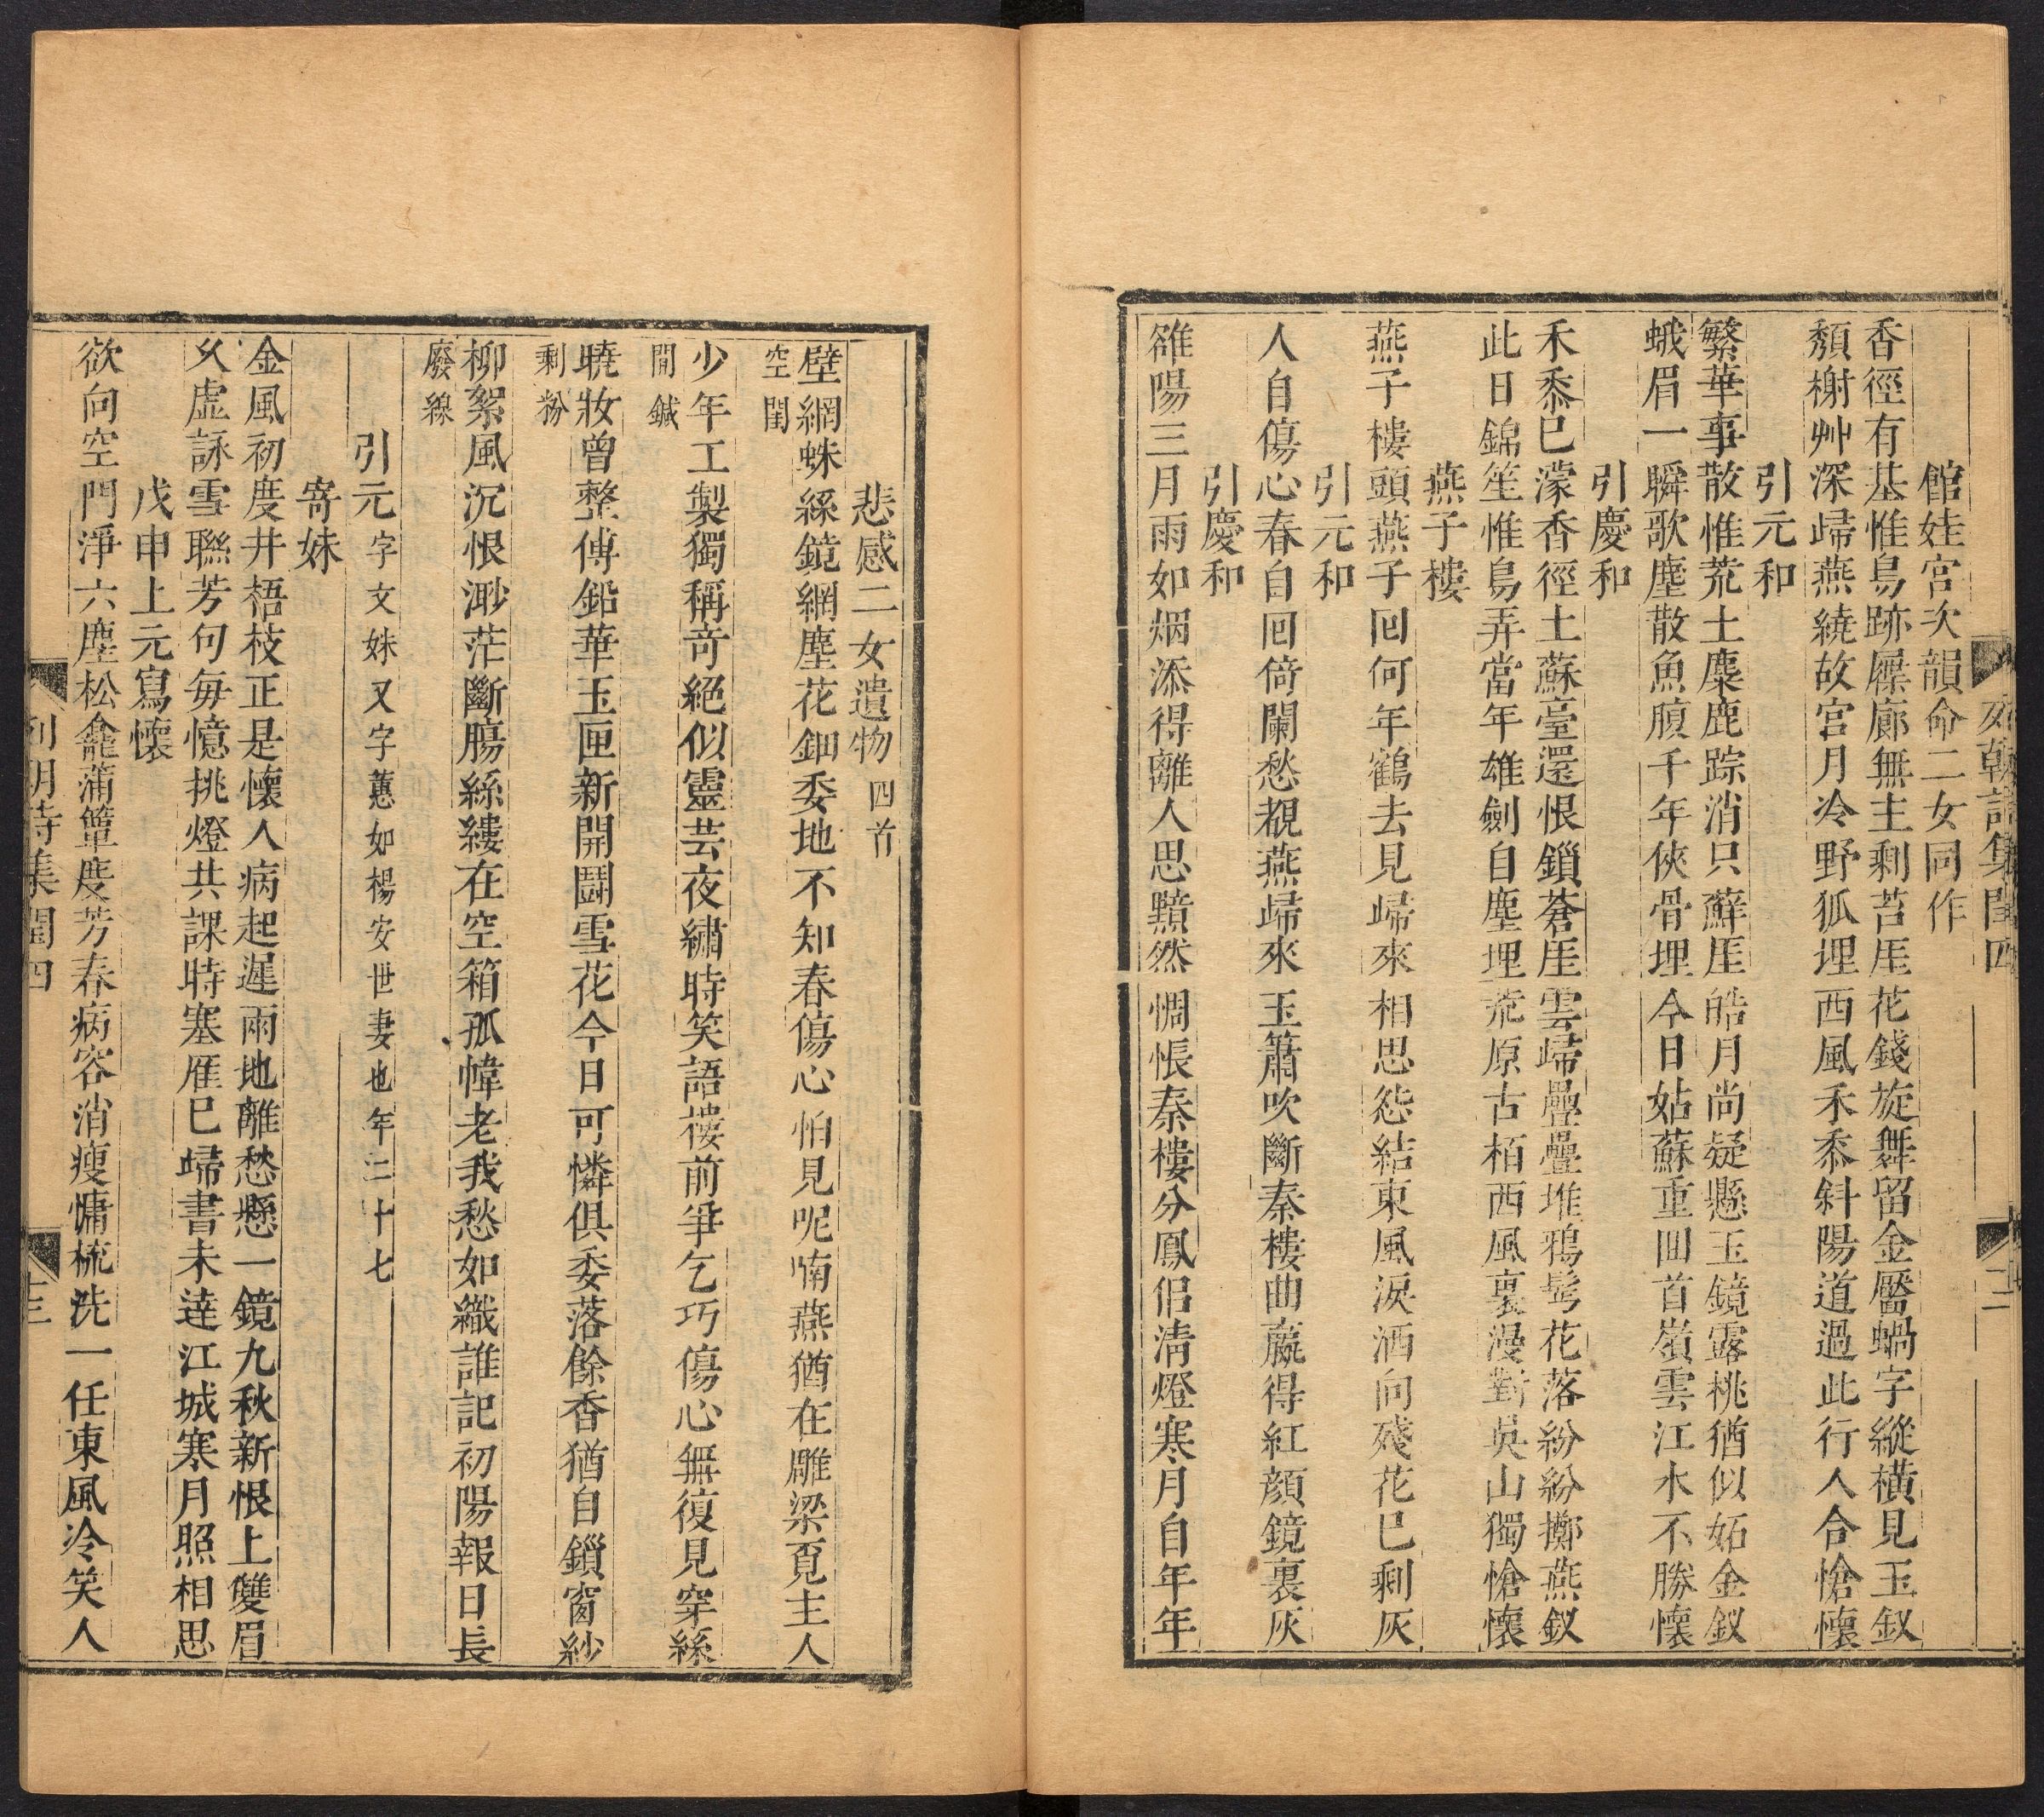 館娃宮次韻命二女同作
香徑有基惟鳥跡屧廊無主剩苔厓花錢旋舞留金靨蝸字縱橫見玉釵
頽榭艸深歸燕繞故宮月冷野狐埋西風禾黍斜陽道過此行人合愴懷
引元和
繁華事散惟荒土麋鹿踪消只蘚厓皓月尚疑懸玉鏡露桃猶似妬金釵
蛾眉一瞬歌塵散魚腹千年俠骨埋今日姑蘇重回首嶺雲江水不勝懷
引慶和
禾黍已濛香徑土蘇臺還恨鎖蒼厓雲歸疊疊堆鴉髩花落紛紛擲燕釵
此日錦笙惟鳥弄當年雄劍自塵埋荒原古栢西風裏漫對吳山獨愴懷
燕子樓
燕子樓頭燕子回何年鶴去見歸來相思怨結東風淚洒向殘花已剩灰
引元和
人自傷心春自回倚闌愁覩燕歸來玉簫吹斷秦樓曲嬴得紅顏鏡裏灰
引慶和
雒陽三月雨如烟添得離人思黯然惆悵秦樓分鳳侶淸燈寒月自年年
悲感二女遺物四首
壁網蛛絲鏡網塵花鈿委地不知春傷心怕見呢喃燕猶在雕梁覓主人
空閨
少年工製獨稱奇絕似靈芸夜繡時笑語樓前爭乞巧傷心無復見穿絲
閒鍼
曉妝曾整傅鉛華玉匣新開鬪雪花今日可憐俱委落餘香猶自鎖窗紗
剩粉
柳絮風沉恨渺茫斷腸絲縷在空箱孤幃老我愁如織誰記初陽報日長
廢線
引元字文姝又字蕙如楊安世妻也年二十七
寄妹
金風初度井梧枝正是懷人病起遲兩地離愁懸一鏡九秋新恨上雙眉
久虛詠雪聯芳句每憶挑燈共課時塞雁已歸書未達江城寒月照相思
戊申上元寫懷
欲向空門淨六塵松龕蒲簟度芳春病容消瘦慵梳洗一任東風冷笑人
列朝詩集閏四